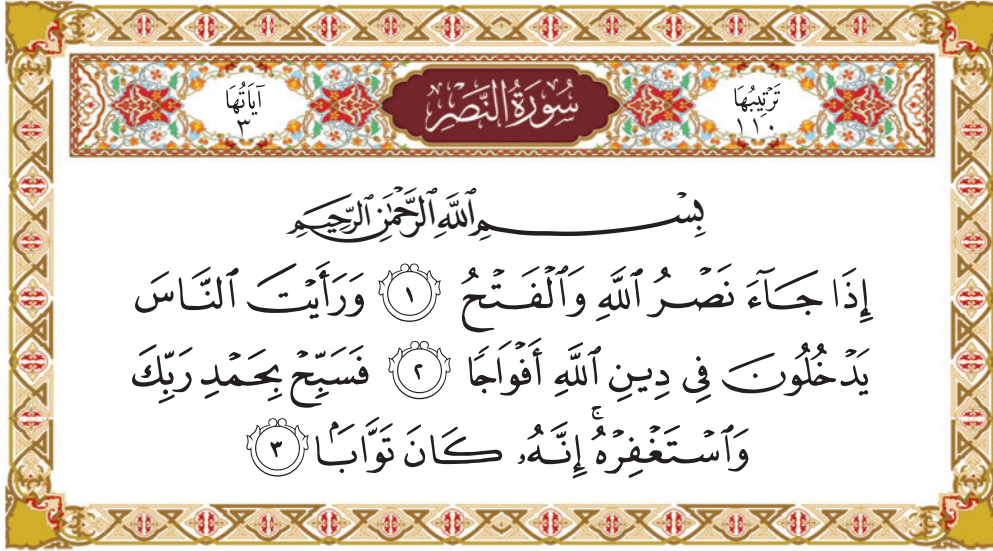 تَرْتِيبُهَا ١١٠ سُورَةُ النَّصْرِ آيَاتُهَا ٣
بِسْمِ ٱللَّهِ ٱلرَّحْمَٰنِ ٱلرَّحِيمِ
إِذَا جَآءَ نَصْرُ ٱللَّهِ وَٱلْفَتْحُ ١ وَرَأَيْتَ ٱلنَّاسَ
يَدْخُلُونَ فِى دِينِ ٱللَّهِ أَفْوَاجًا ٢ فَسَبِّحْ بِحَمْدِ رَبِّكَ
وَٱسْتَغْفِرْهُ ۚ إِنَّهُۥ كَانَ تَوَّابًۢا ٣